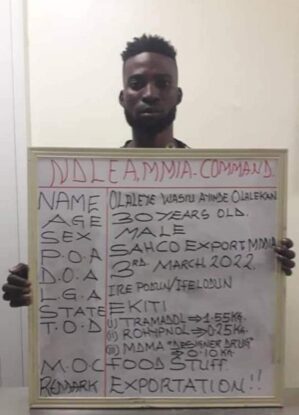 NDLEA, MMIA-COMMAND.
NAME OLALEYE WASIU AYINDE OLALEKAN
AGE 30 YEARS OLD.
SEX MALE
P.O.A SAHCO EXPORT MMIA
D.O.A 3RD. MARCH 2022.
L.G.A IREPODUN/IFELODUN
STATE EKITI
T.O.D (i) TRAMADOL ⇒ 1.55KG.
(ii) ROHYPNOL ⇒ 0.25KG.
(iii) MDMA "DESIGNER DRUG"
⇒ 0.10 KG.
M.O.C FOOD STUFF.
REMARK EXPORTATION!!